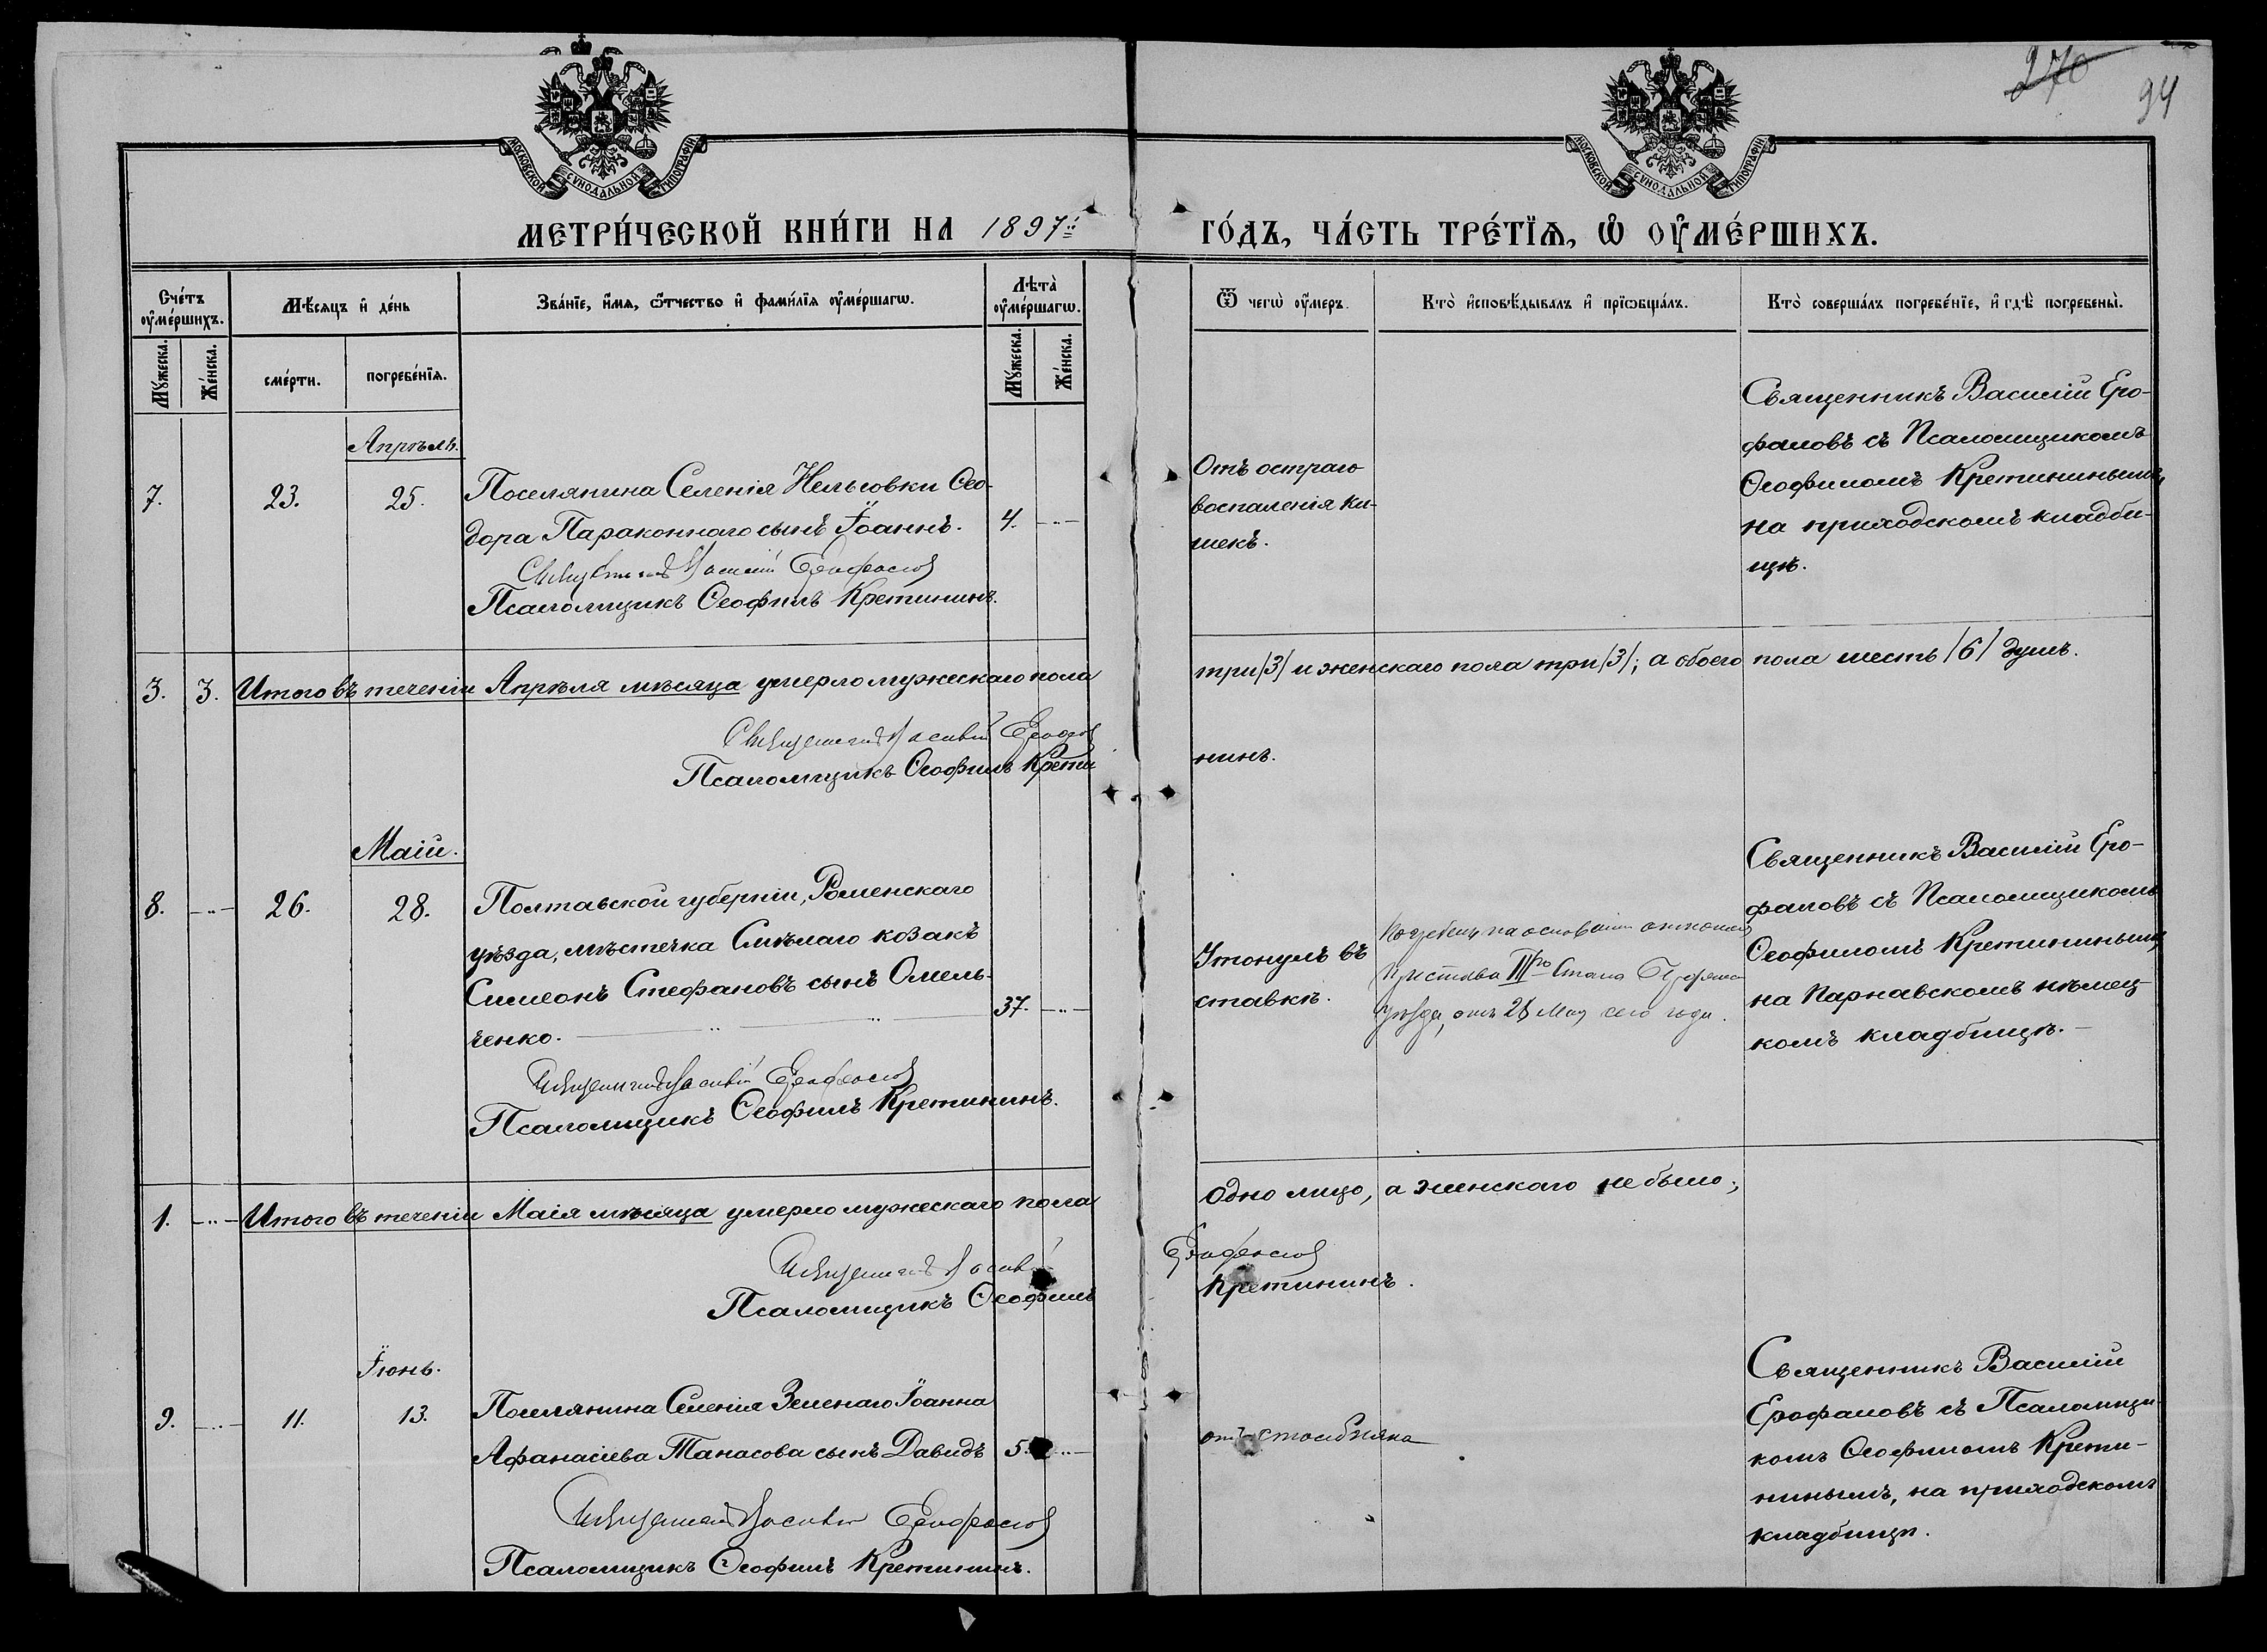 270
94
МОСКОВСКОЙ СѴНОДАЛЬНОЙ ТИПОГРАФІИ
МОСКОВСКОЙ СѴНОДАЛЬНОЙ ТИПОГРАФІИ
МЕТРИ́ЧЕСКОЙ КНИ́ГИ НА 1897й ГО́ДЪ, ЧА́СТЬ ТРЕ́ТІЯ, Ѡ ОУ҆МЕ́РШИХЪ.
Сче́тъ оу҆ме́ршихъ.
Мꙋ́жеска.
Же́нска.
Мѣ́сяцъ и҆ де́нь
сме́рти.
погребе́нїя.
Зва́нїе, и҆́мя, ѻ҆́тчество и҆ фами́лїя оу҆ме́ршагѡ.
Лѣта̀ оу҆ме́ршагѡ.
Мꙋ́жеска.
Же́нска.
Ѿ чегѡ̀ оу҆́меръ.
Кто̀ и҆сповѣ́дывалъ и҆ прїѡбща́лъ.
Кто̀ соверша́лъ погребе́нїе, и҆ гдѣ̀ погребены̀.
Апрѣль.
7.
23.
25.
Поселянина Селенія Нельговки Ѳео-
дора Параконнаго сынъ Іоаннъ.
4.
Священникъ Василій Ерофаловъ
Псаломщикъ Ѳеофилъ Кретининъ.
Отъ остраго
воспаленія ки-
шекъ.
Священникъ Василій Еро-
фаловъ съ Псаломщикомъ
Ѳеофиломъ Кретининымъ,
на приходскомъ кладби-
щѣ.
3. 3. Итого въ теченіи Апрѣля мѣсяца умерло мужескаго пола три /3/ и женскаго пола три /3/; а обоего пола шесть /6/ душъ.
Священникъ Василій Ерофаловъ
Псаломщикъ Ѳеофилъ Крети нинъ.
Маій.
8.
26.
28.
Полтавской губерніи, Роменскаго
уѣзда, мѣстечка Смѣлаго козакъ
Симеонъ Стефановъ сынъ Омель-
ченко.
37.
Священникъ Василій Ерофаловъ
Псаломщикъ Ѳеофилъ Кретининъ.
Утонулъ въ
ставкѣ.
Погребенъ на основаніи
Пристава III го Стана
уѣзда, отъ 28 Мая сего года.
Священникъ Василій Еро-
фаловъ съ Псаломщикомъ
Ѳеофиломъ Кретининымъ,
на Парнавскомъ нѣмец-
комъ кладбищѣ.
1. Итого въ теченіи Маія мѣсяца умерло мужескаго пола одно лицо, а женскаго не было;
Священникъ Василій Ерофаловъ
Псаломщикъ Ѳеофилъ Кретининъ.
Іюнь.
9.
11.
13.
Поселянина Селенія Зеленаго Іоанна
Афанасіева Танасова сынъ Давидъ
5.
Священникъ Василій Ерофаловъ
Псаломщикъ Ѳеофилъ Кретининъ.
отъ столбняка
Священникъ Василій
Ерофаловъ съ Псаломщи-
комъ Ѳеофиломъ Крети-
нинымъ, на приходскомъ
кладбищѣ.